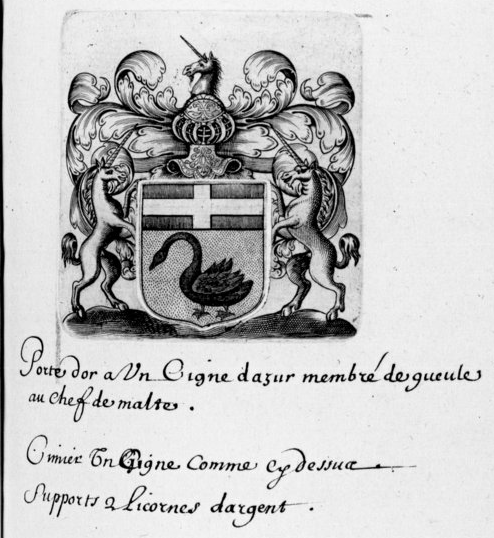 Porte dor a Un Cigne dazur membré de gueule
au chef de malte.
Cimier Un Cigne Comme cy dessus
Supports 2 Licornes dargent.